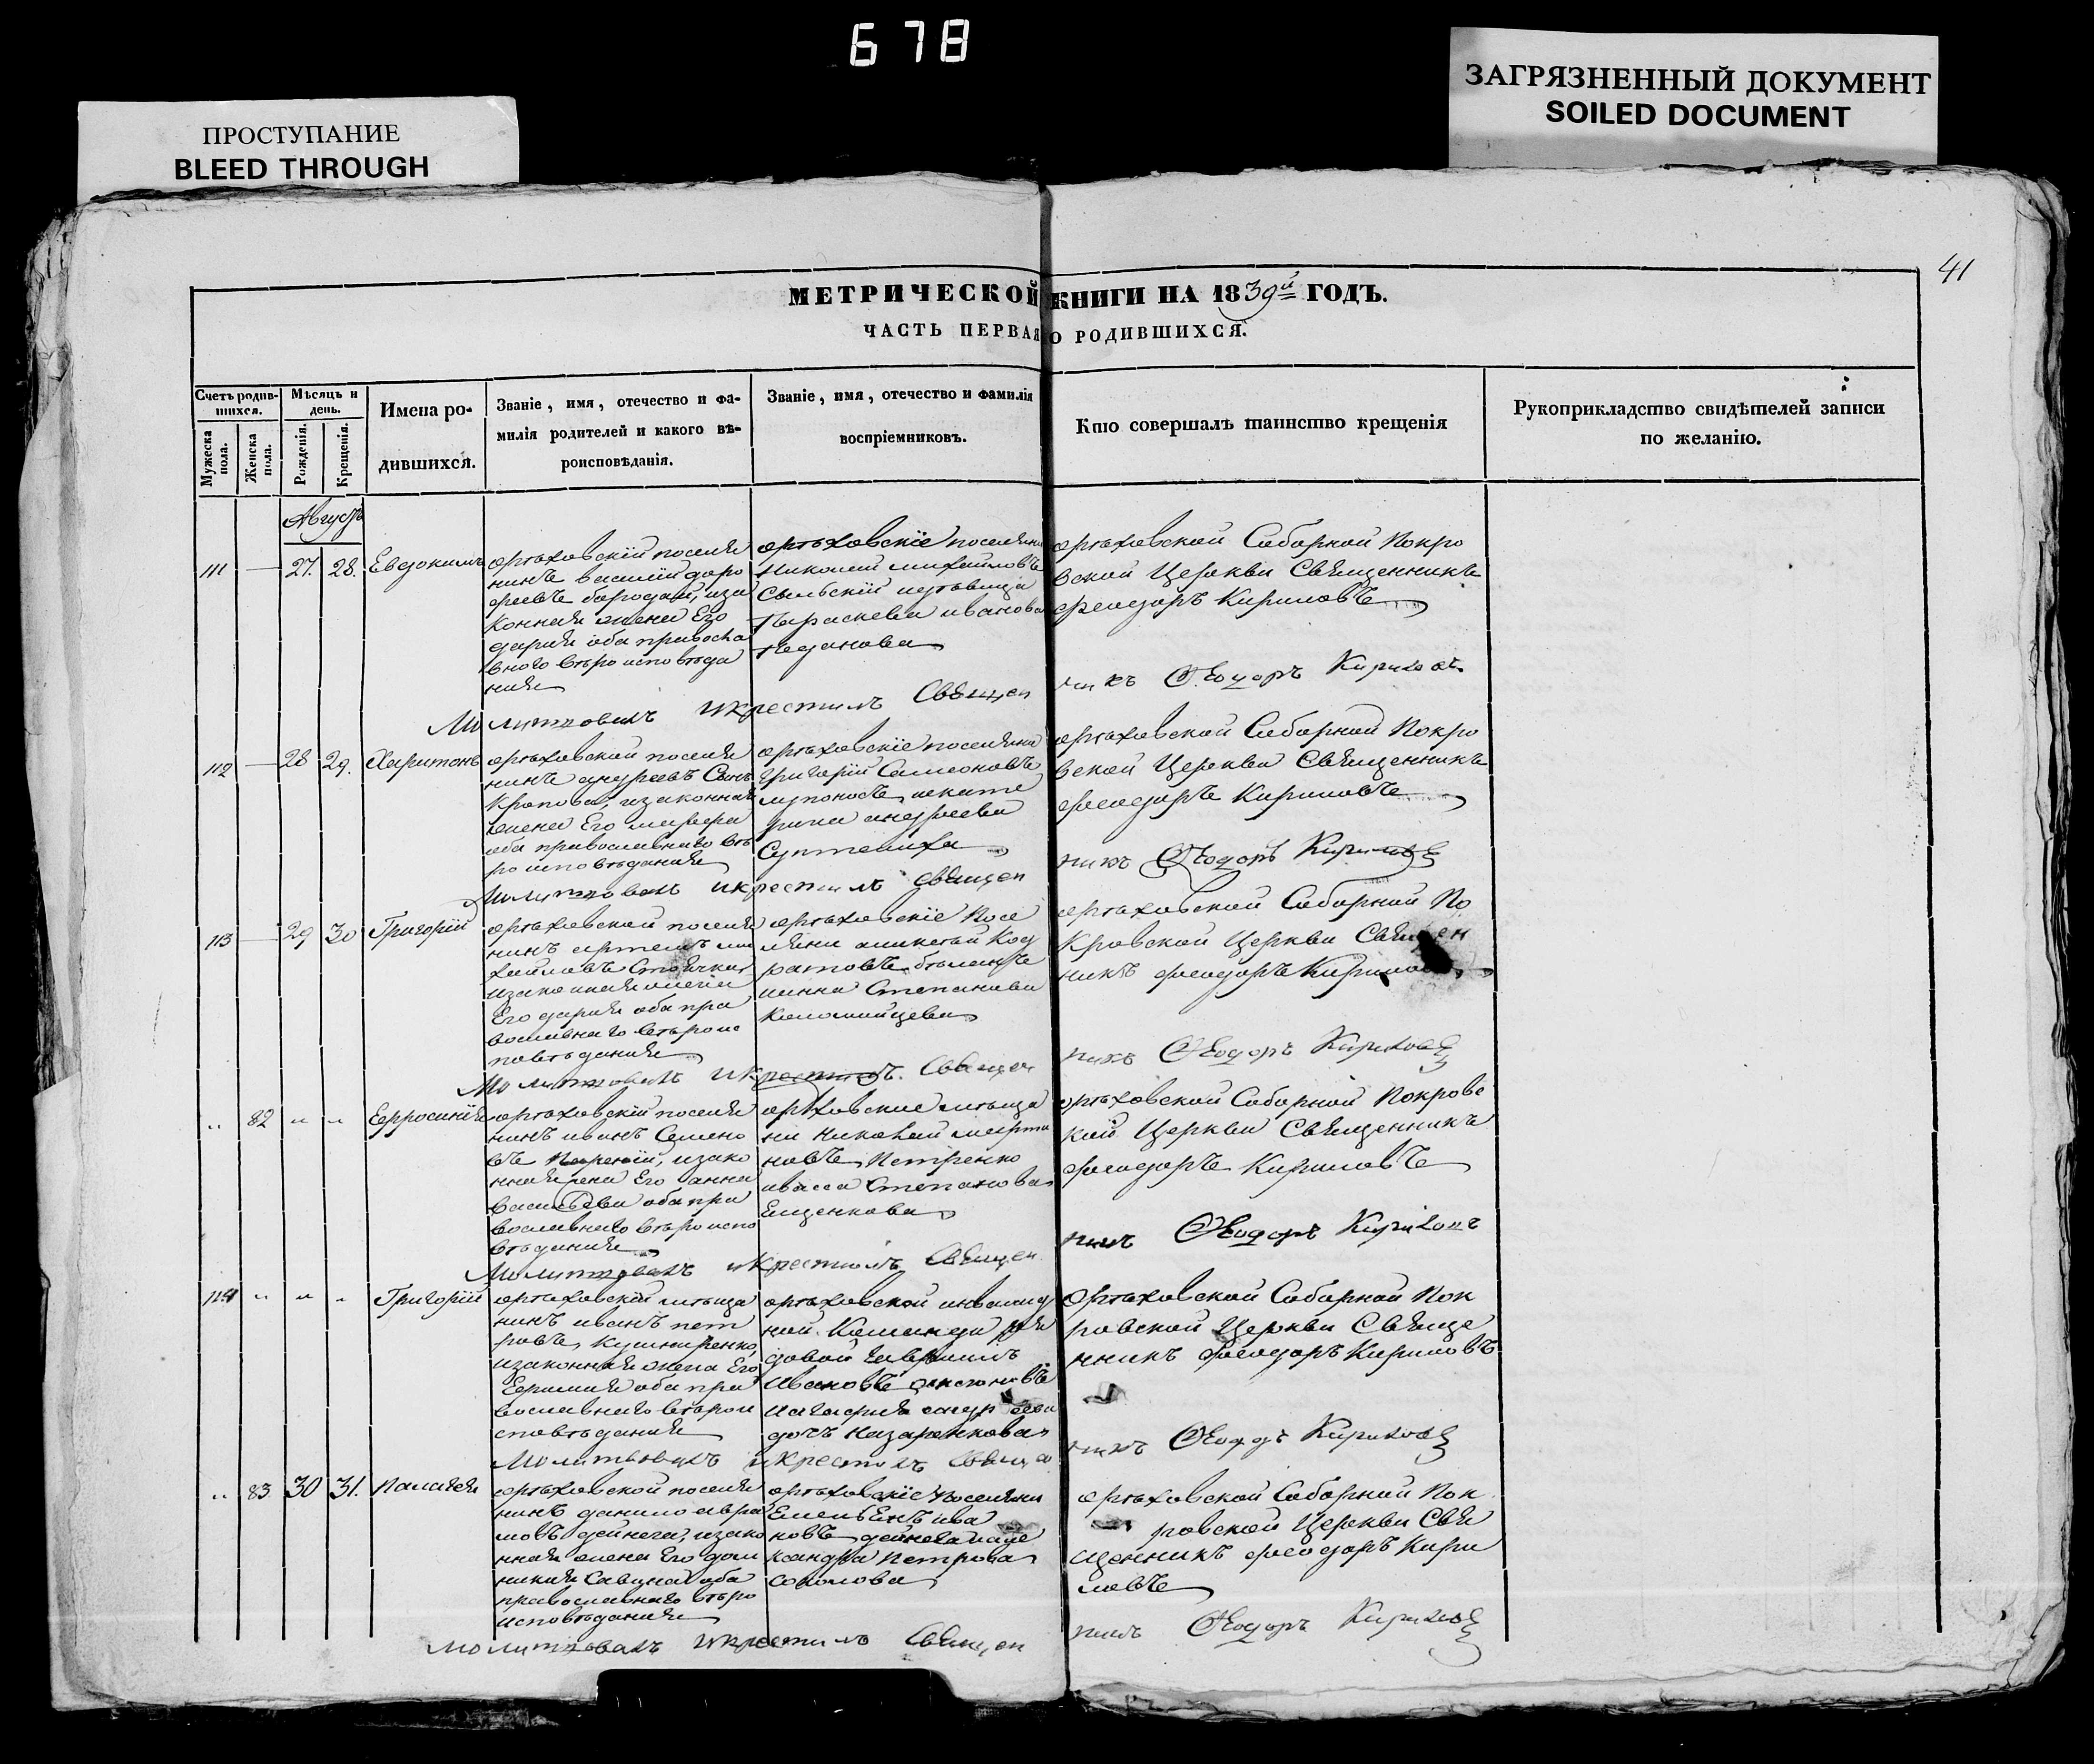 678
ПРОСТУПАНИЕ
BLEED THROUGH
ЗАГРЯЗНЕННЫЙ ДОКУМЕНТ
SOILED DOCUMENT
41
МЕТРИЧЕСКОЙ КНИГИ НА 1839й ГОДЪ.
ЧАСТЬ ПЕРВАЯ О РОДИВШИХСЯ.
Счетъ родив-
шихся.
Мужеска пола.
Женска пола.
Мѣсяцъ и
день.
Рожденія.
Крещенія.
Имена ро-
дившихся.
Званіе, имя, отечество и фа-
милія родителей и какого вѣ-
роисповѣданія.
Званіе, имя, отечество и фамилія
воспріемниковъ.
Кто совершалъ таинство крещенія
Рукоприкладство свидѣтелей записи
по желанію.
Августъ
111
27. 28.
Евдокимъ
орѣховскій поселя
нинъ василій доро
феевъ изза
конная жена Его
дария оба правосла
вного вѣро исповѣда
ния
орѣховскіе поселяни
Николай михайловъ
Параскева иванова
орѣховской Соборной Покро
вской Церкви Священникъ
феодоръ Кириловъ
Молитвовалъ и крестилъ Священ
никъ Ѳеодоръ Кириловъ
112
28 29.
Харитонъ
орѣховской поселя
нинъ андреевъ Сынъ
изаконная
жена Его марфа
оба православнаго вѣ
ро исповѣдания
орѣховскіе поселяни
григорій Самсоновъ
андреева
орѣховской Соборной Покро
вской Церкви Священникъ
феодоръ Кириловъ
Молитвовалъ и крестилъ Священ
никъ Ѳеодоръ Кириловъ
113
29 30
Григорій
орѣховской поселя
нинъ артемъ ми
хайловъ
изаконная жена
Его дария оба пра
вославнаго вѣрои
повѣдания
орѣховскіе Посе
ляни алексѣй Код
ратовъ
ианна Степанова
Коломийцева
орѣховской Соборной По
Кровской Церкви Священ
никъ феодоръ Кириловъ
Молитвовалъ и крестилъ. Священ
никъ Ѳеодоръ Кириловъ
82
Ефросиния
орѣховскій поселя
нинъ иванъ Семено
въ изако
нная жена Его анна
васильева оба пра
вославнаго вѣро испо
вѣдания
орѣховские мѣща
ни николай марти
новъ Петренко
Степанова
Ещенкова
орѣховской Соборной Покровс
кой Церкви Священникъ
феодоръ Кириловъ
Молитвовалъ и крестилъ Священ
никъ Ѳеодоръ Кириловъ
114
Григорій
орѣховскій мѣща
нинъ иванъ пет
ровъ Кушниренко,
изаконная жена Его
оба пра
вославнаго вѣрои
сповѣдания
орѣховской инвалид
ной Команди ря
довой гаврилъ
Ивановъ
дочъ Назаренкова
Орѣховской Соборной Пок
ровской Церкви Священ
нникъ феодоръ Кириловъ
Молитвовалъ и крестилъ Священ
никъ Ѳеодоръ Кириловъ
83 30 31.
Палагея
орѣховской поселя
нинъ данило авра
мовъ дейнега, изако
нная жена Его дом
никия Савина оба
православнаго вѣро
исповѣдания
орѣховскіе поселяни
Емельенъ ива
новъ дейнега иале
ксандра Петрова
Соколова
орѣховской Соборной Пок
ровской Церкви Свя
щенникъ феодоръ Кири
ловъ
Молитвовалъ и крестилъ Священ
никъ Ѳеодоръ Кириловъ